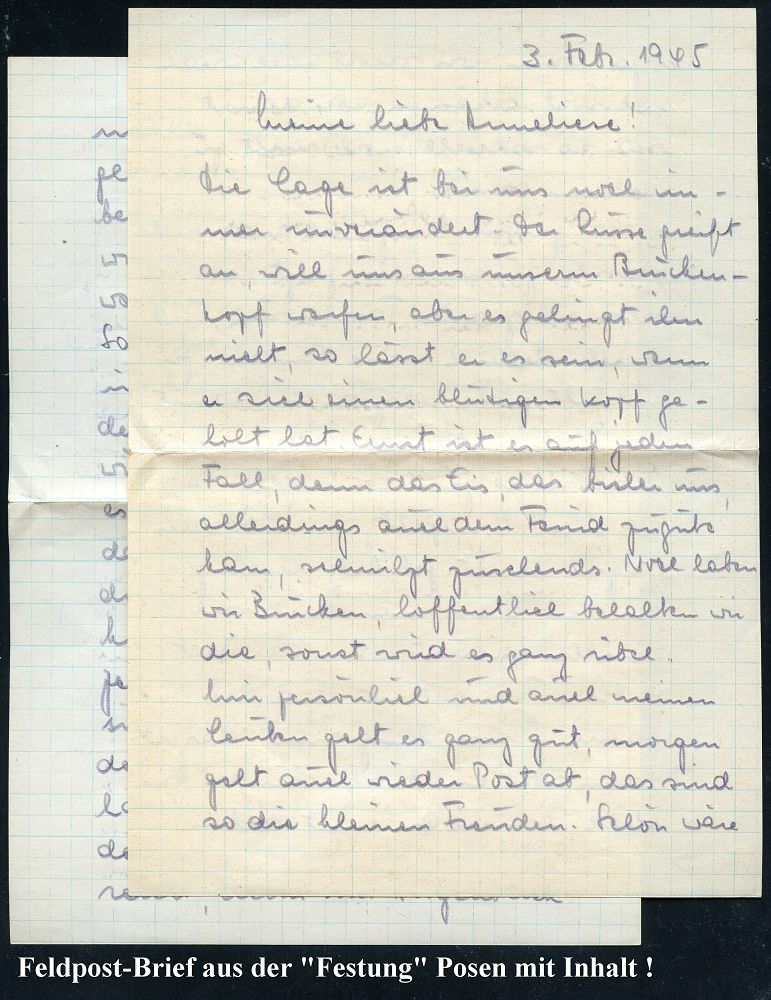 3. Febr. 1945
Meine liebe Anneliese!
Die Lage ist bei uns noch im-
mer unverändert. Der Russe greift
an, will uns aus unserm Brücken-
kopf werfen, aber es gelingt ihm
nicht, so lässt er es sein, wenn
er sich einen blutigen Kopf ge-
holt hat. Ernst ist es auf jeden
Fall, denn das Eis, das bisher uns,
allerdings auch dem Feind zugute
kam, schmilzt zusehends. Noch haben
wir Brücken, hoffentlich behalten wir
die, sonst wird es ganz übel.
Mir persönlich und auch meinen
Leuten geht es ganz gut, morgen
geht auch wieder Post ab, das sind
so die kleinen Freuden. Schön wäre
Feldpost-Brief aus der "Festung" Posen mit Inhalt !